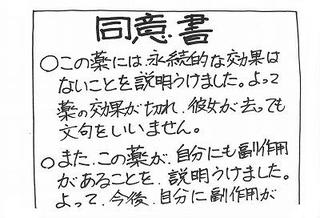 同意書
○この薬には永続的な効果は
ないことを説明うけました。よって
薬の効果が切れ、彼女が去っても
文句をいいません。
○また、この薬が、自分にも副作用
があることを、説明うけました。
よって、今後、自分に副作用が